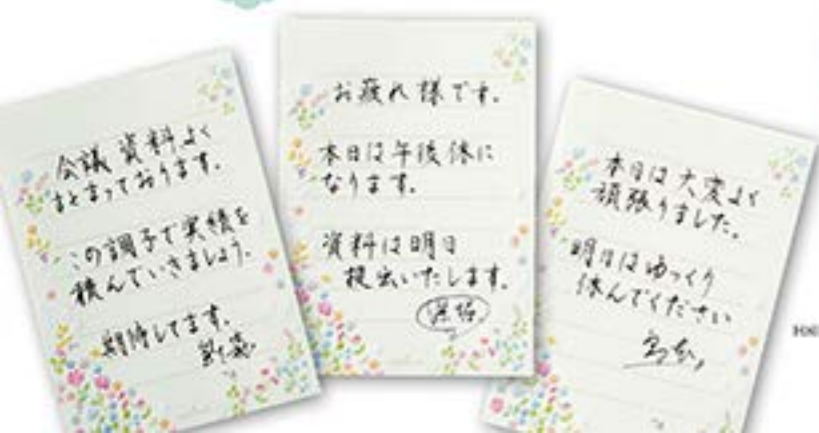 会議資料よく
まとまっております。
この調子で実績を
積んでいきましょう。
期待してます。
お疲れ様です。
本日は午後休に
なります。
資料は明日
提出いたします。
本日は大変よく
頑張りました。
明日はゆっくり
休んでください